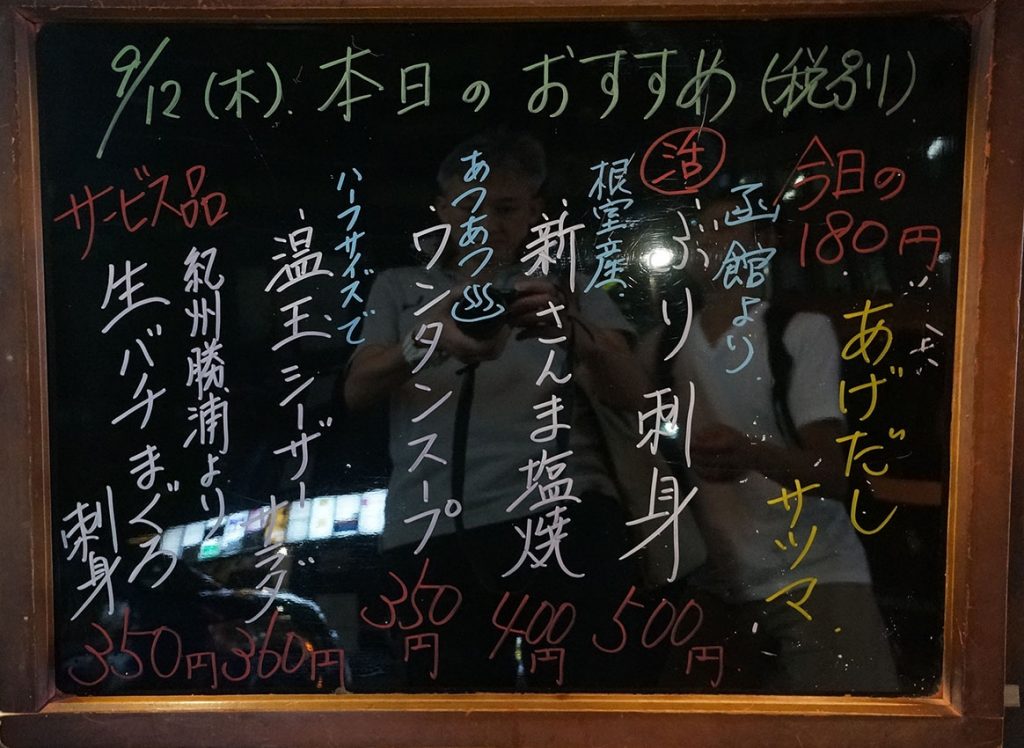 9/12(木) 本日のおすすめ(税別)
今日の
180円
あげだし
サツマ
函館より
活
ぶり刺身
500円
根室産
新さんま塩焼
400円
あつあつ
ワンタンスープ
350円
ハーフサイズで
温玉シーザーサラダ
360円
サービス品
紀州勝浦より
生バチまぐろ
刺身
350円